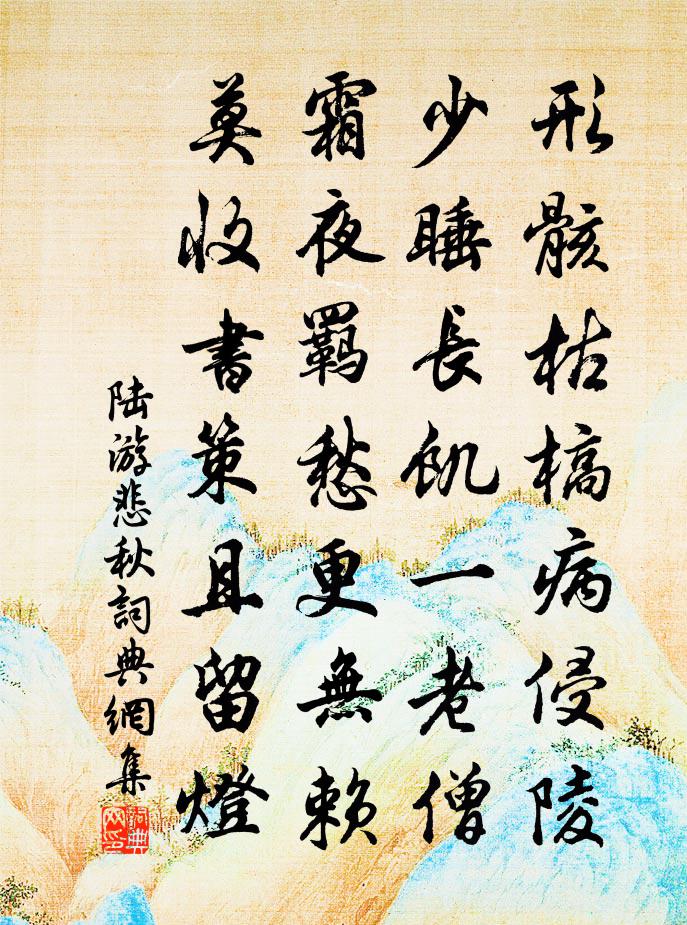 形骸枯槁病侵陵
少睡長飢一老僧
霜夜羁愁更無賴
莫收書策且留燈
陆游悲秋詞典網集